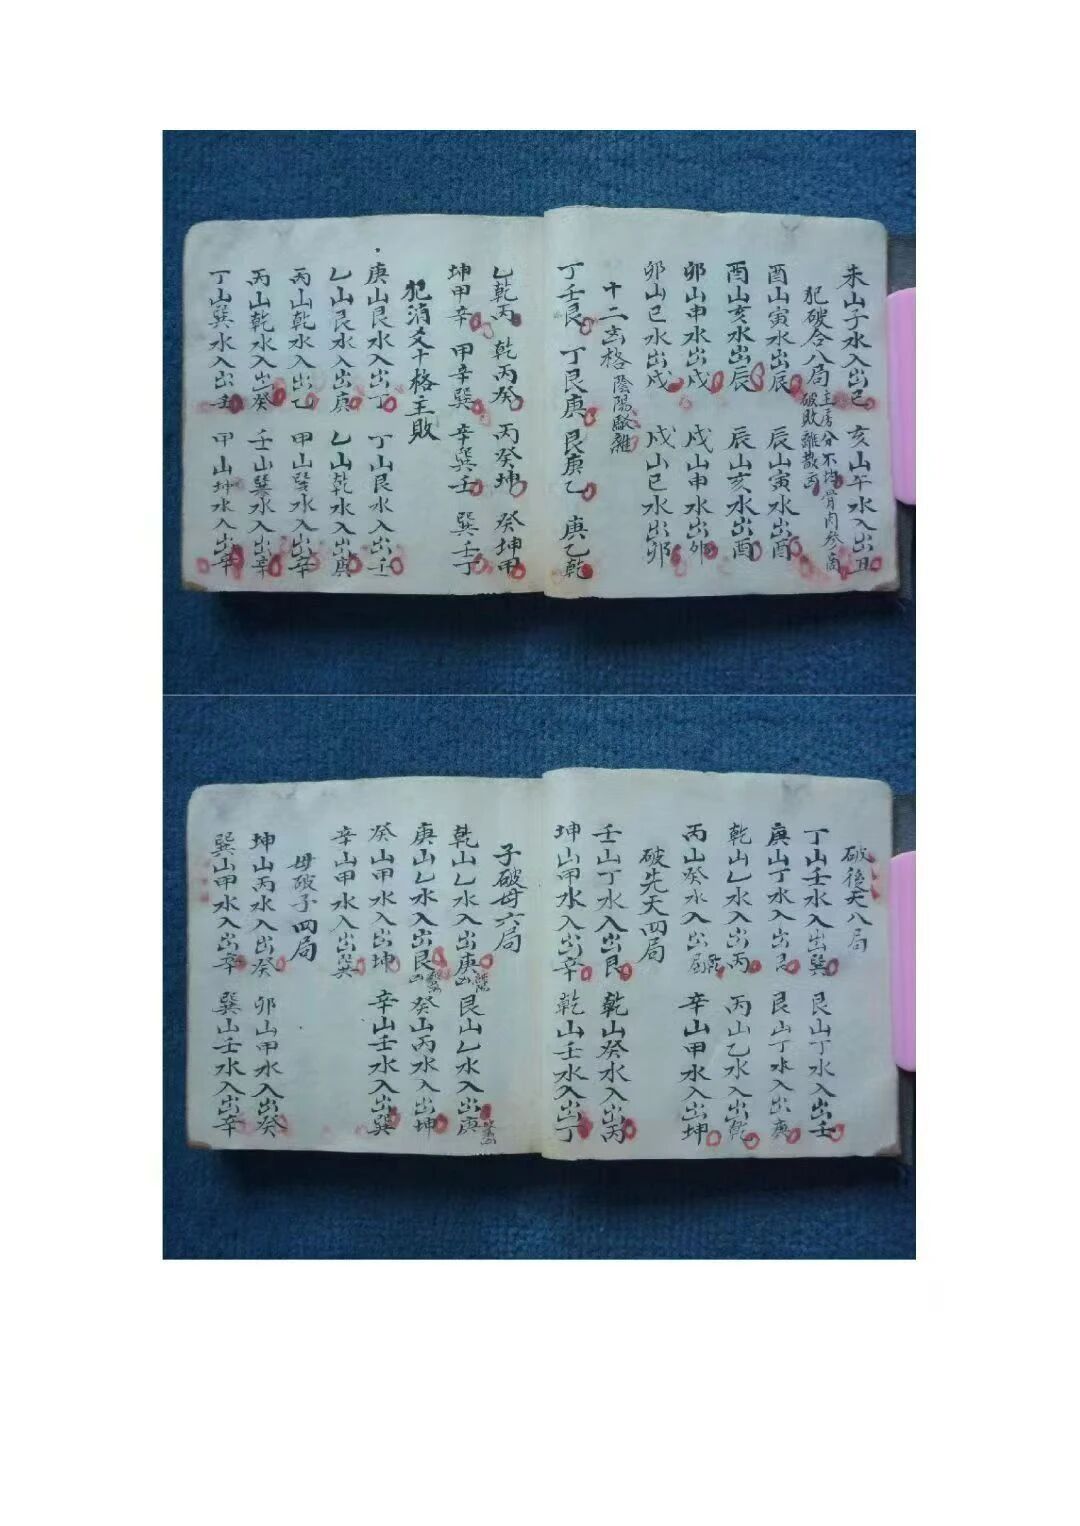 未山子水入出巳 亥山午水入出丑
犯破合八局 主房分不均骨肉參商 破敗離散凶
酉山寅水出辰 辰山寅水出酉
酉山亥水出辰 辰山亥水出酉
卯山申水出戌 戌山申水出卯
卯山巳水出戌 戌山巳水出卯
十二凶格 陰陽駁雜
丁壬艮 丁艮庚 艮庚乙 庚乙乾
乙乾丙 乾丙癸 丙癸坤 癸坤甲
坤甲辛 甲辛巽 辛巽壬 巽壬丁
犯消爻十格主敗
庚山艮水入出丁 丁山艮水入出壬
乙山艮水入出庚 乙山乾水入出庚
丙山乾水入出乙 甲山巽水入出辛
丙山乾水入出癸 壬山巽水入出辛
丁山巽水入出壬 甲山坤水入出辛
破後天八局
丁山壬水入出巽 艮山丁水入出壬
庚山丁水入出艮 艮山丁水入出庚
乾山乙水入出丙 丙山乙水入出乾
丙山癸水入出 辛山甲水入出坤
破先天四局
壬山丁水入出艮 乾山癸水入出丙
坤山甲水入出辛 乾山壬水入出丁
子破母六局
乾山乙水入出庚 艮山乙水入出庚
庚山乙水入出艮 癸山丙水入出坤
癸山甲水入出坤 辛山壬水入出巽
辛山甲水入出巽
母破子四局
坤山丙水入出癸 卯山甲水入出癸
巽山甲水入出辛 巽山壬水入出辛